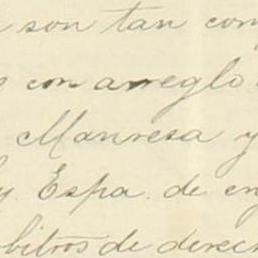 son tan com
s con arreglo
Manresa y
y. Espa. de en
bitros de derech